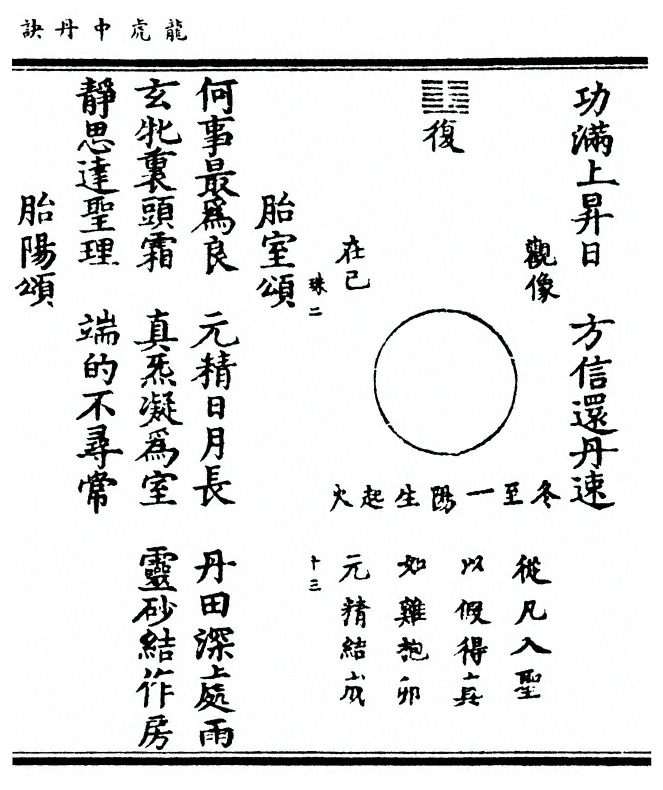 龍虎中丹訣
功滿上昇日 方信還丹速
觀像
復
冬至一陽生起火
從凡入聖
以假得真
如雞抱卵
元精結成
在已
珠二
十三
胎室頌
何事最爲良 元精日月長 丹田深處雨
玄牝裏頭霜 真炁凝爲室 靈砂結作房
靜思達聖理 端的不尋常
胎陽頌